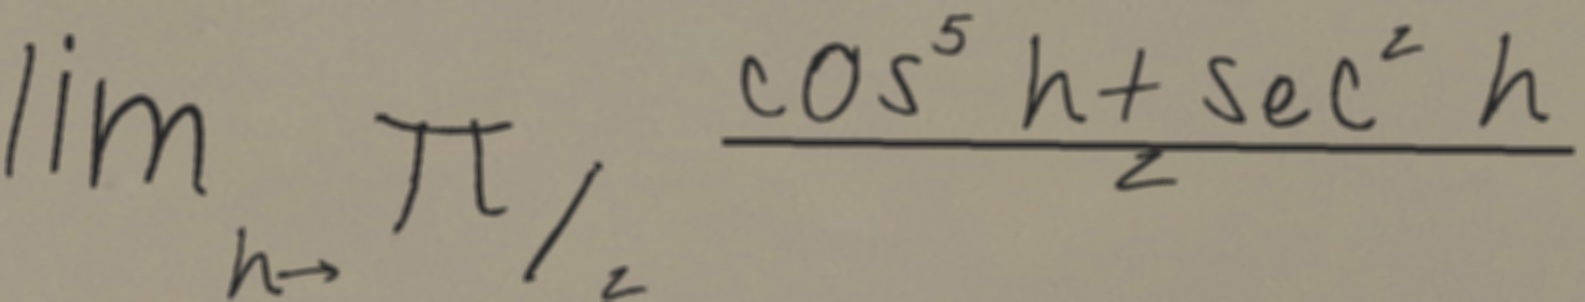 \lim_{h \to \pi/2} \frac{\cos^5 h + \sec^2 h}{2}